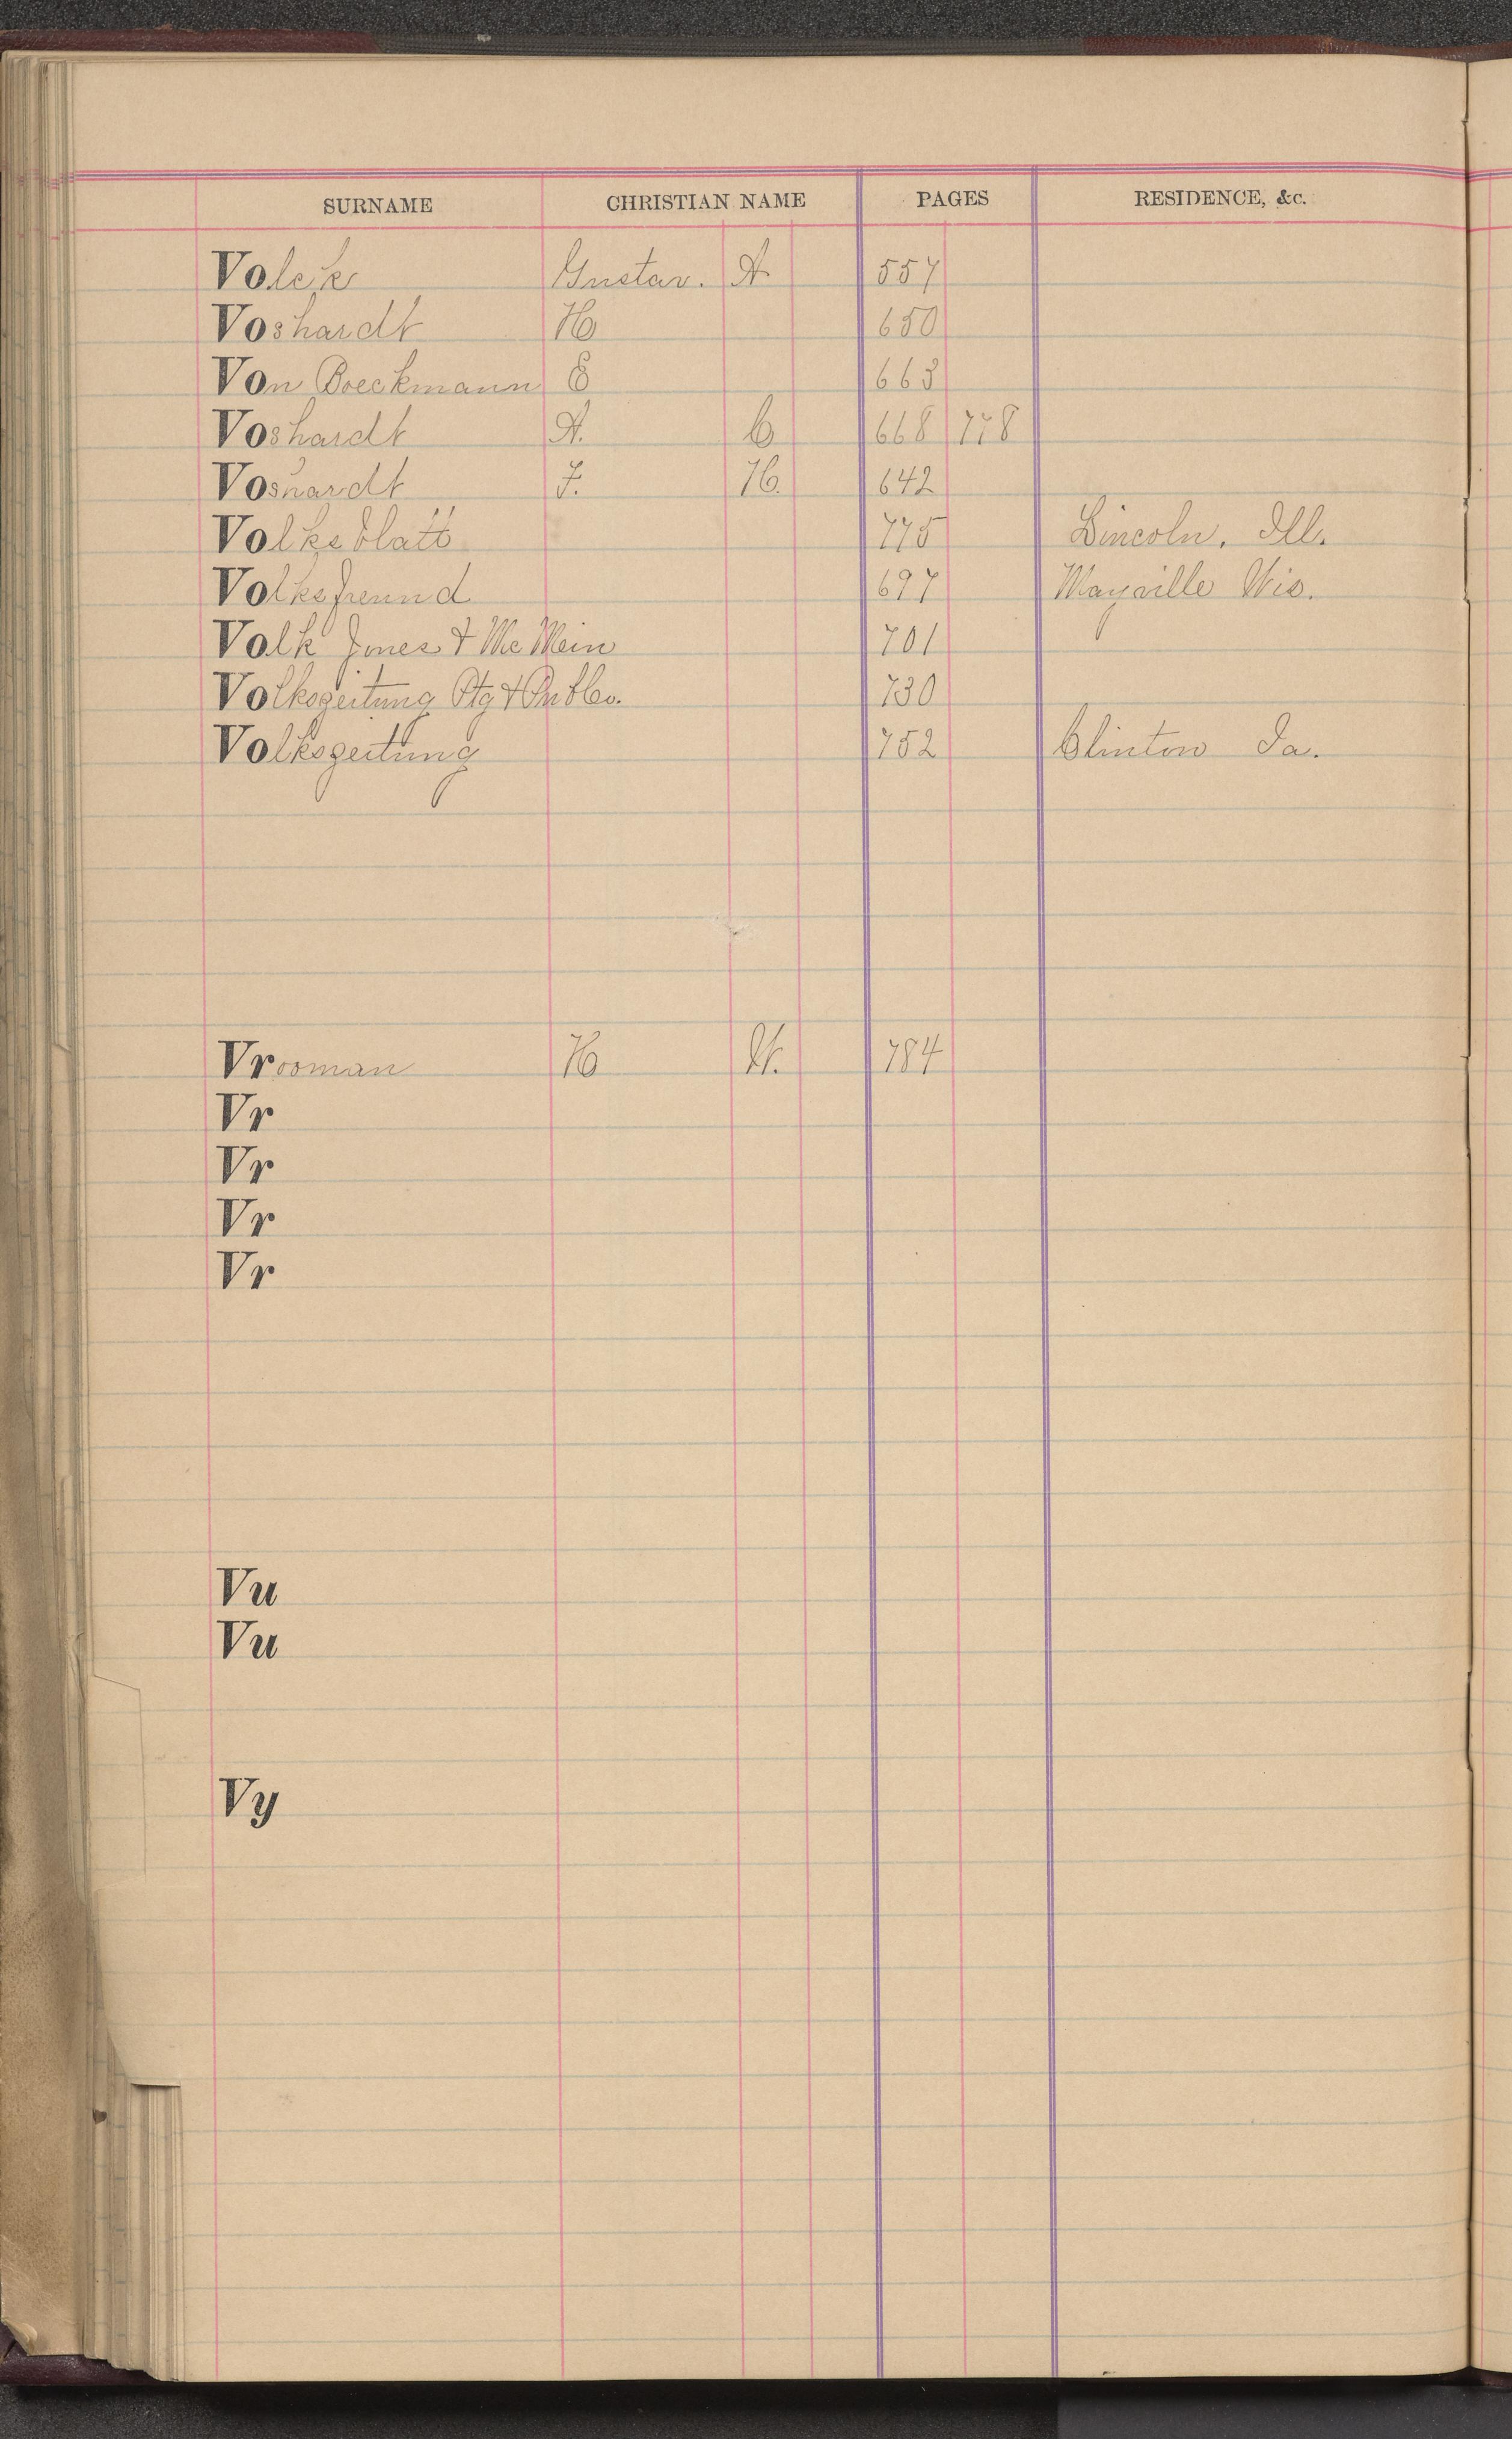 SURNAME CHRISTIAN NAME PAGES RESIDENCE, &c.
Volck Gustav. A 557
Voshardt H 650
Von Boeckmann E 663
Voshardt A. C 668 778
Voshardt F. H. 642
Volksblatt 775 Lincoln, Ill.
Volksfreund 697 Mayville Wis.
Volk Jones & Mc Mein 701
Volkszeitung Ptg & Pub Co. 730
Volkszeitung 752 Clinton Ia.
Vrooman H W. 784
Vr
Vr
Vr
Vr
Vu
Vu
Vy